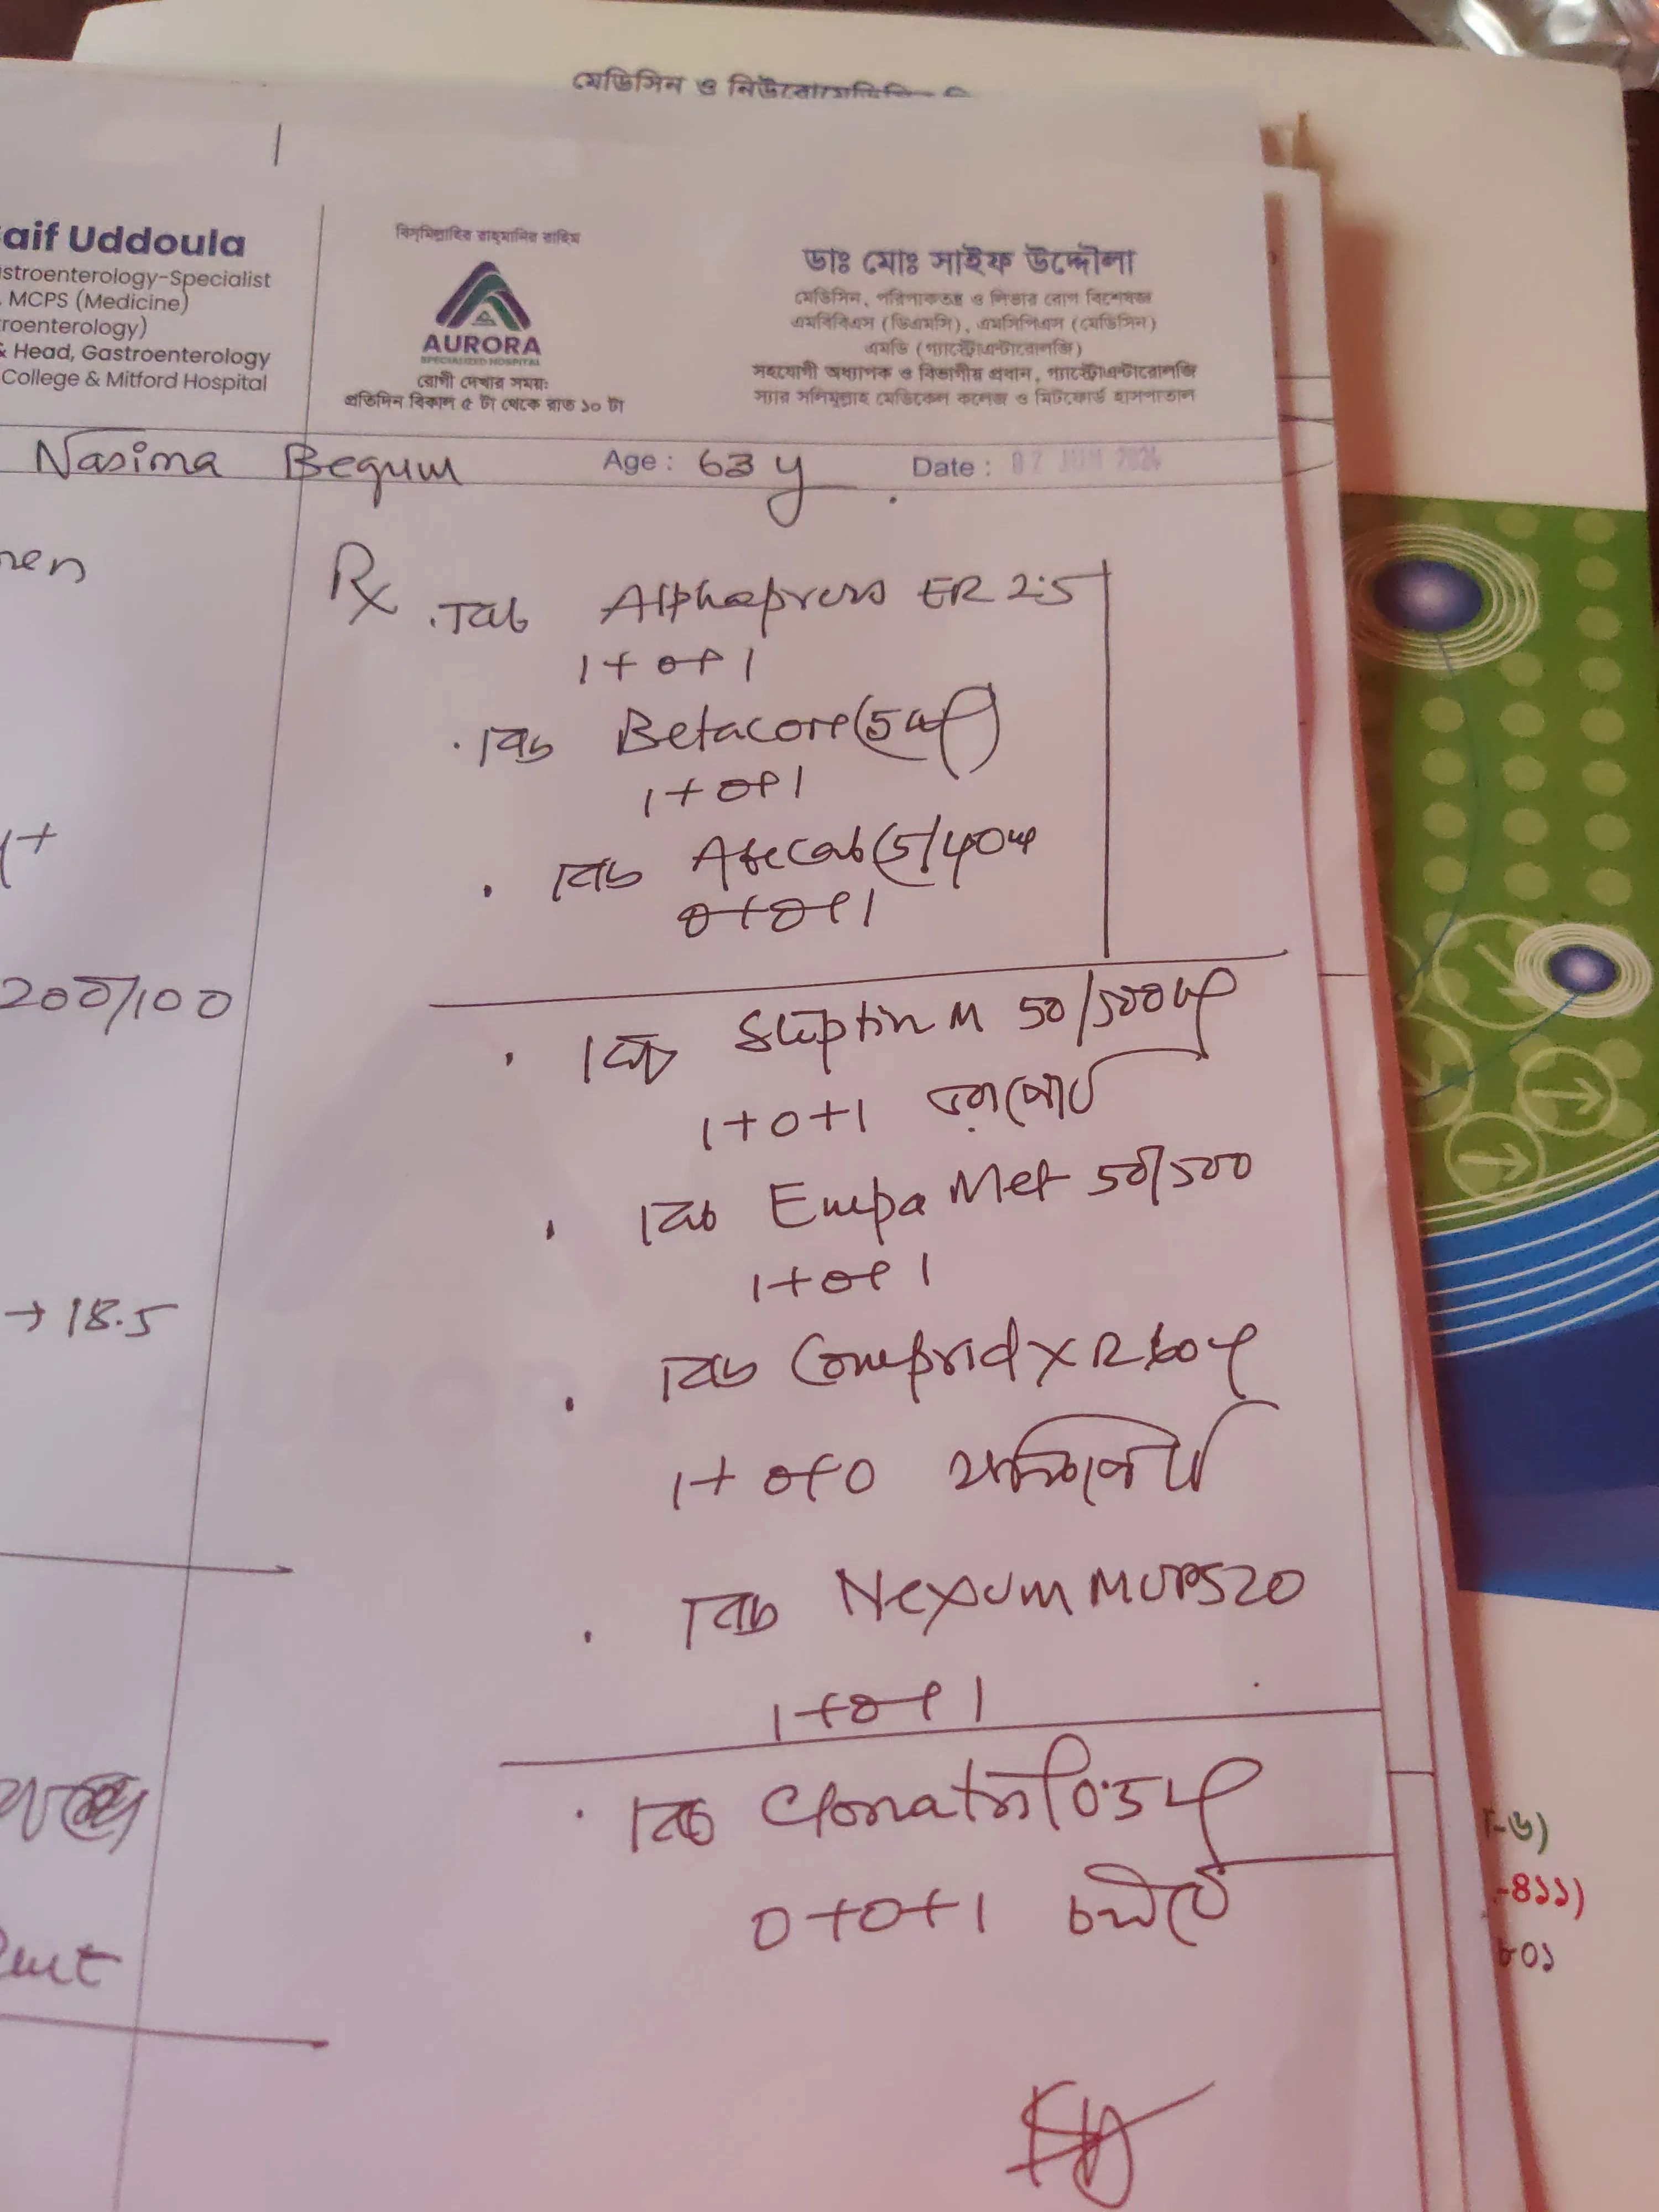 মেডিসিন ও
aif Uddoula
stroenterology-Specialist
MCPS (Medicine)
roenterology)
& Head, Gastroenterology
College & Mitford Hospital
বিসমিল্লাহির রাহমানির রাহিম
AURORA
SPECIALIZED HOSPITAL
রোগী দেখার সময়ঃ
প্রতিদিন বিকাল ৫ টা থেকে রাত ১০ টা
ডাঃ মোঃ সাইফ উদ্দৌলা
মেডিসিন, পরিপাকতন্ত্র ও লিভার রোগ বিশেষজ্ঞ
এমবিবিএস (ডিএমসি), এমসিপিএস (মেডিসিন)
এমডি (গ্যাস্ট্রোএন্টারোলজি)
সহযোগী অধ্যাপক ও বিভাগীয় প্রধান, গ্যাস্ট্রোএন্টারোলজি
স্যার সলিমুল্লাহ মেডিকেল কলেজ ও মিটফোর্ড হাসপাতাল
Nasima Begum Age : 63 y Date : 02 JUN 2024
Rx
. Tab Alphapress ER 2.5
1+0+1
. Tab Betacore (5mg)
1+0+1
. Tab (5/40mg
0+0+1
200/100
. Tab Sliptin M 50/500mg
1+0+1 ভরাপেটে
. Tab Empa Met 50/500
1+0+1
→ 18.5
. Tab Comprid XR 60mg
1+0+0 খালিপেটে
. Tab Nexum MUPS 20
1+0+1
. Tab Clonatril 0.5mg
0+0+1
-৬)
-৪১১)
৮০১
AURORA